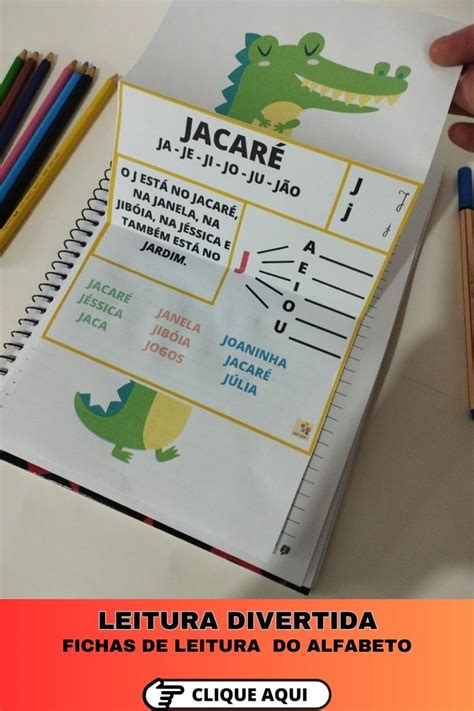 JACARÉ
JA - JE - JI - JO - JU - JÃO
O J ESTÁ NO JACARÉ,
NA JANELA, NA
JIBÓIA, NA JÉSSICA E
TAMBÉM ESTÁ NO
JARDIM.
J
j
J
A
E
I
O
U
JACARÉ
JÉSSICA
JACA
JANELA
JIBÓIA
JOGOS
JOANINHA
JACARÉ
JÚLIA
LEITURA DIVERTIDA
FICHAS DE LEITURA DO ALFABETO
CLIQUE AQUI